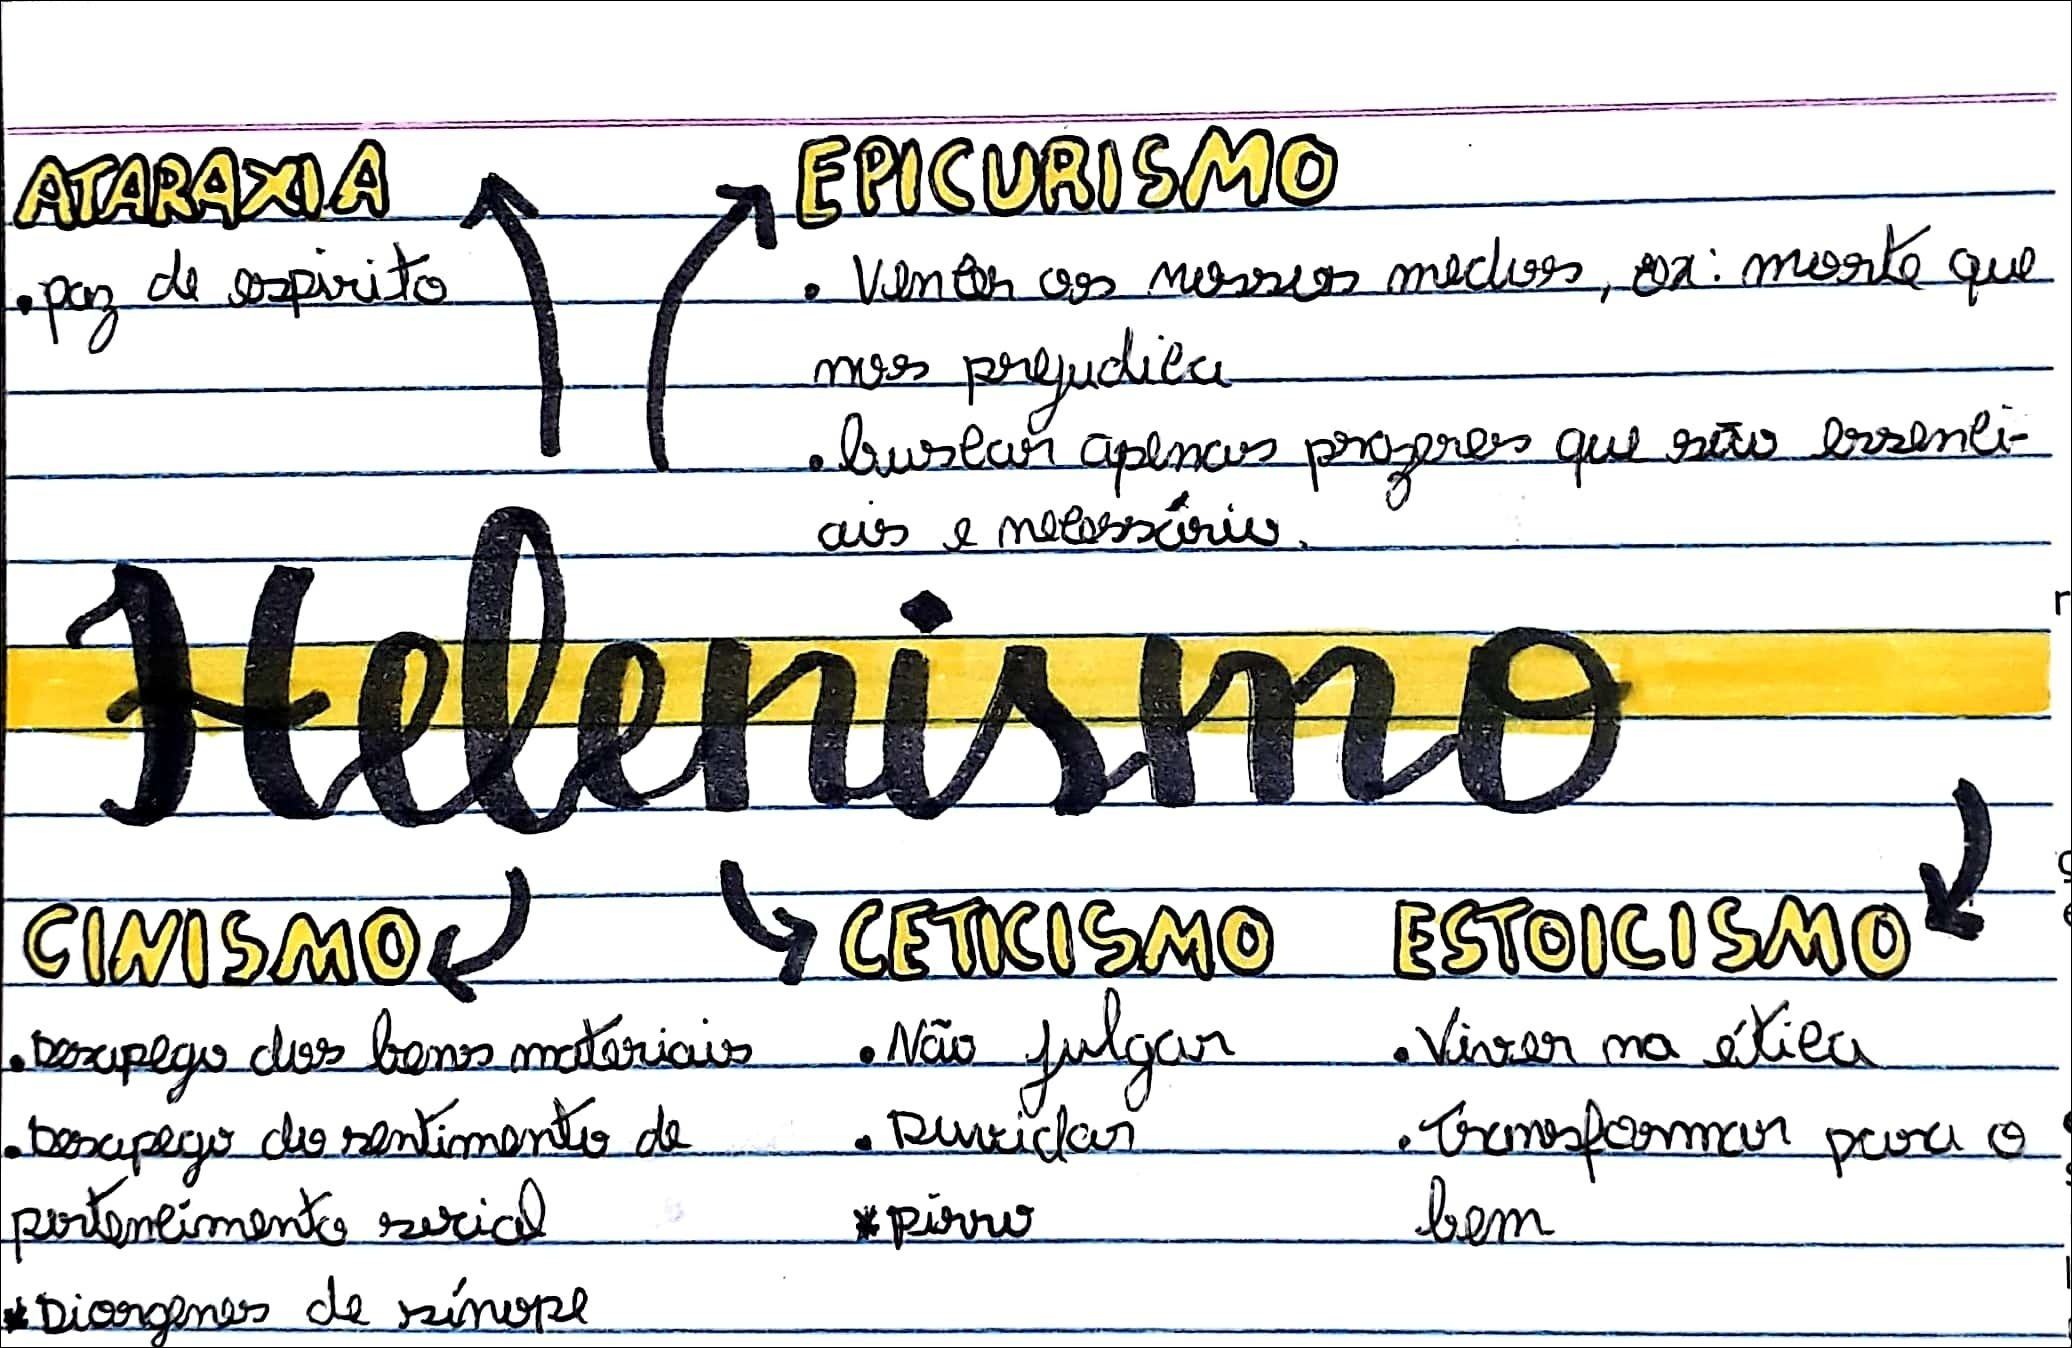 ATARAXIA
• paz de espirito
EPICURISMO
• Vencer os nossos medos, ex: morte que
nos prejudica
• buscar apenas prazeres que são essenci-
ais e necessário.
Helenismo
CINISMO
• Desapego dos bens materiais
• Desapego do sentimento de
pertencimento social
* Diorgenes de sínope
CETICISMO
• Não julgar
• Duvidar
* pirro
ESTOICISMO
• Viver na ética
• Transformar para o
bem